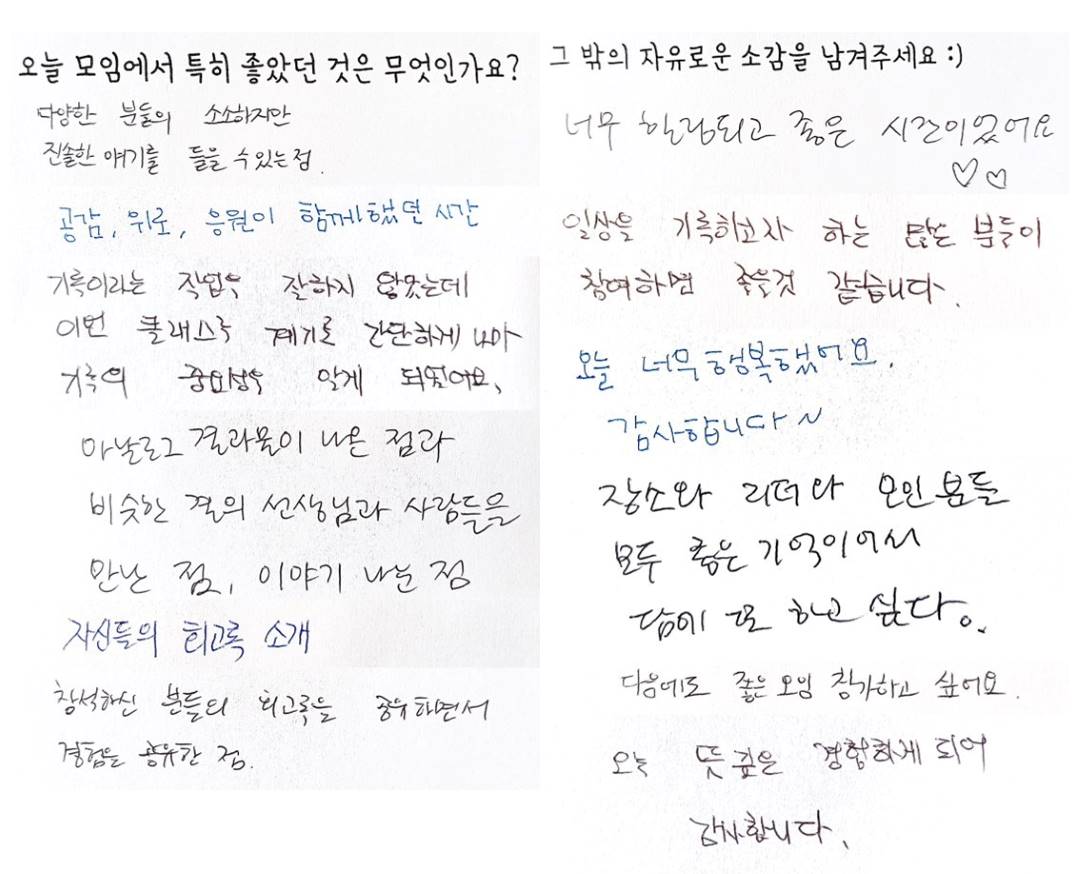 오늘 모임에서 특히 좋았던 것은 무엇인가요?
다양한 분들의 소소하지만
진솔한 얘기를 들을 수 있는 점.
공감, 위로, 응원이 함께했던 시간
기록이라는 작업을 잘하지 않았는데
이번 클래스를 계기로 간단하게 나마
기록의 중요성을 알게 되었어요.
아날로그 결과물이 나온 점과
비슷한 결의 선생님과 사람들을
만난 점, 이야기 나눈 점
자신들의 회고록 소개
참석하신 분들의 회고록을 공유하면서
경험을 공유한 점.
그 밖의 자유로운 소감을 남겨주세요 :)
너무 힐링되고 좋은 시간이었어요
♡♡
일상을 기록하고자 하는 많은 분들이
참여하면 좋을것 같습니다.
오늘 너무 행복했어요.
감사합니다~
장소와 리더와 모인분들
모두 좋은 기억이어서
담에 또 하고 싶다.
다음에도 좋은 모임 참가하고 싶어요.
오늘 뜻 깊은 경험하게 되어
감사합니다.